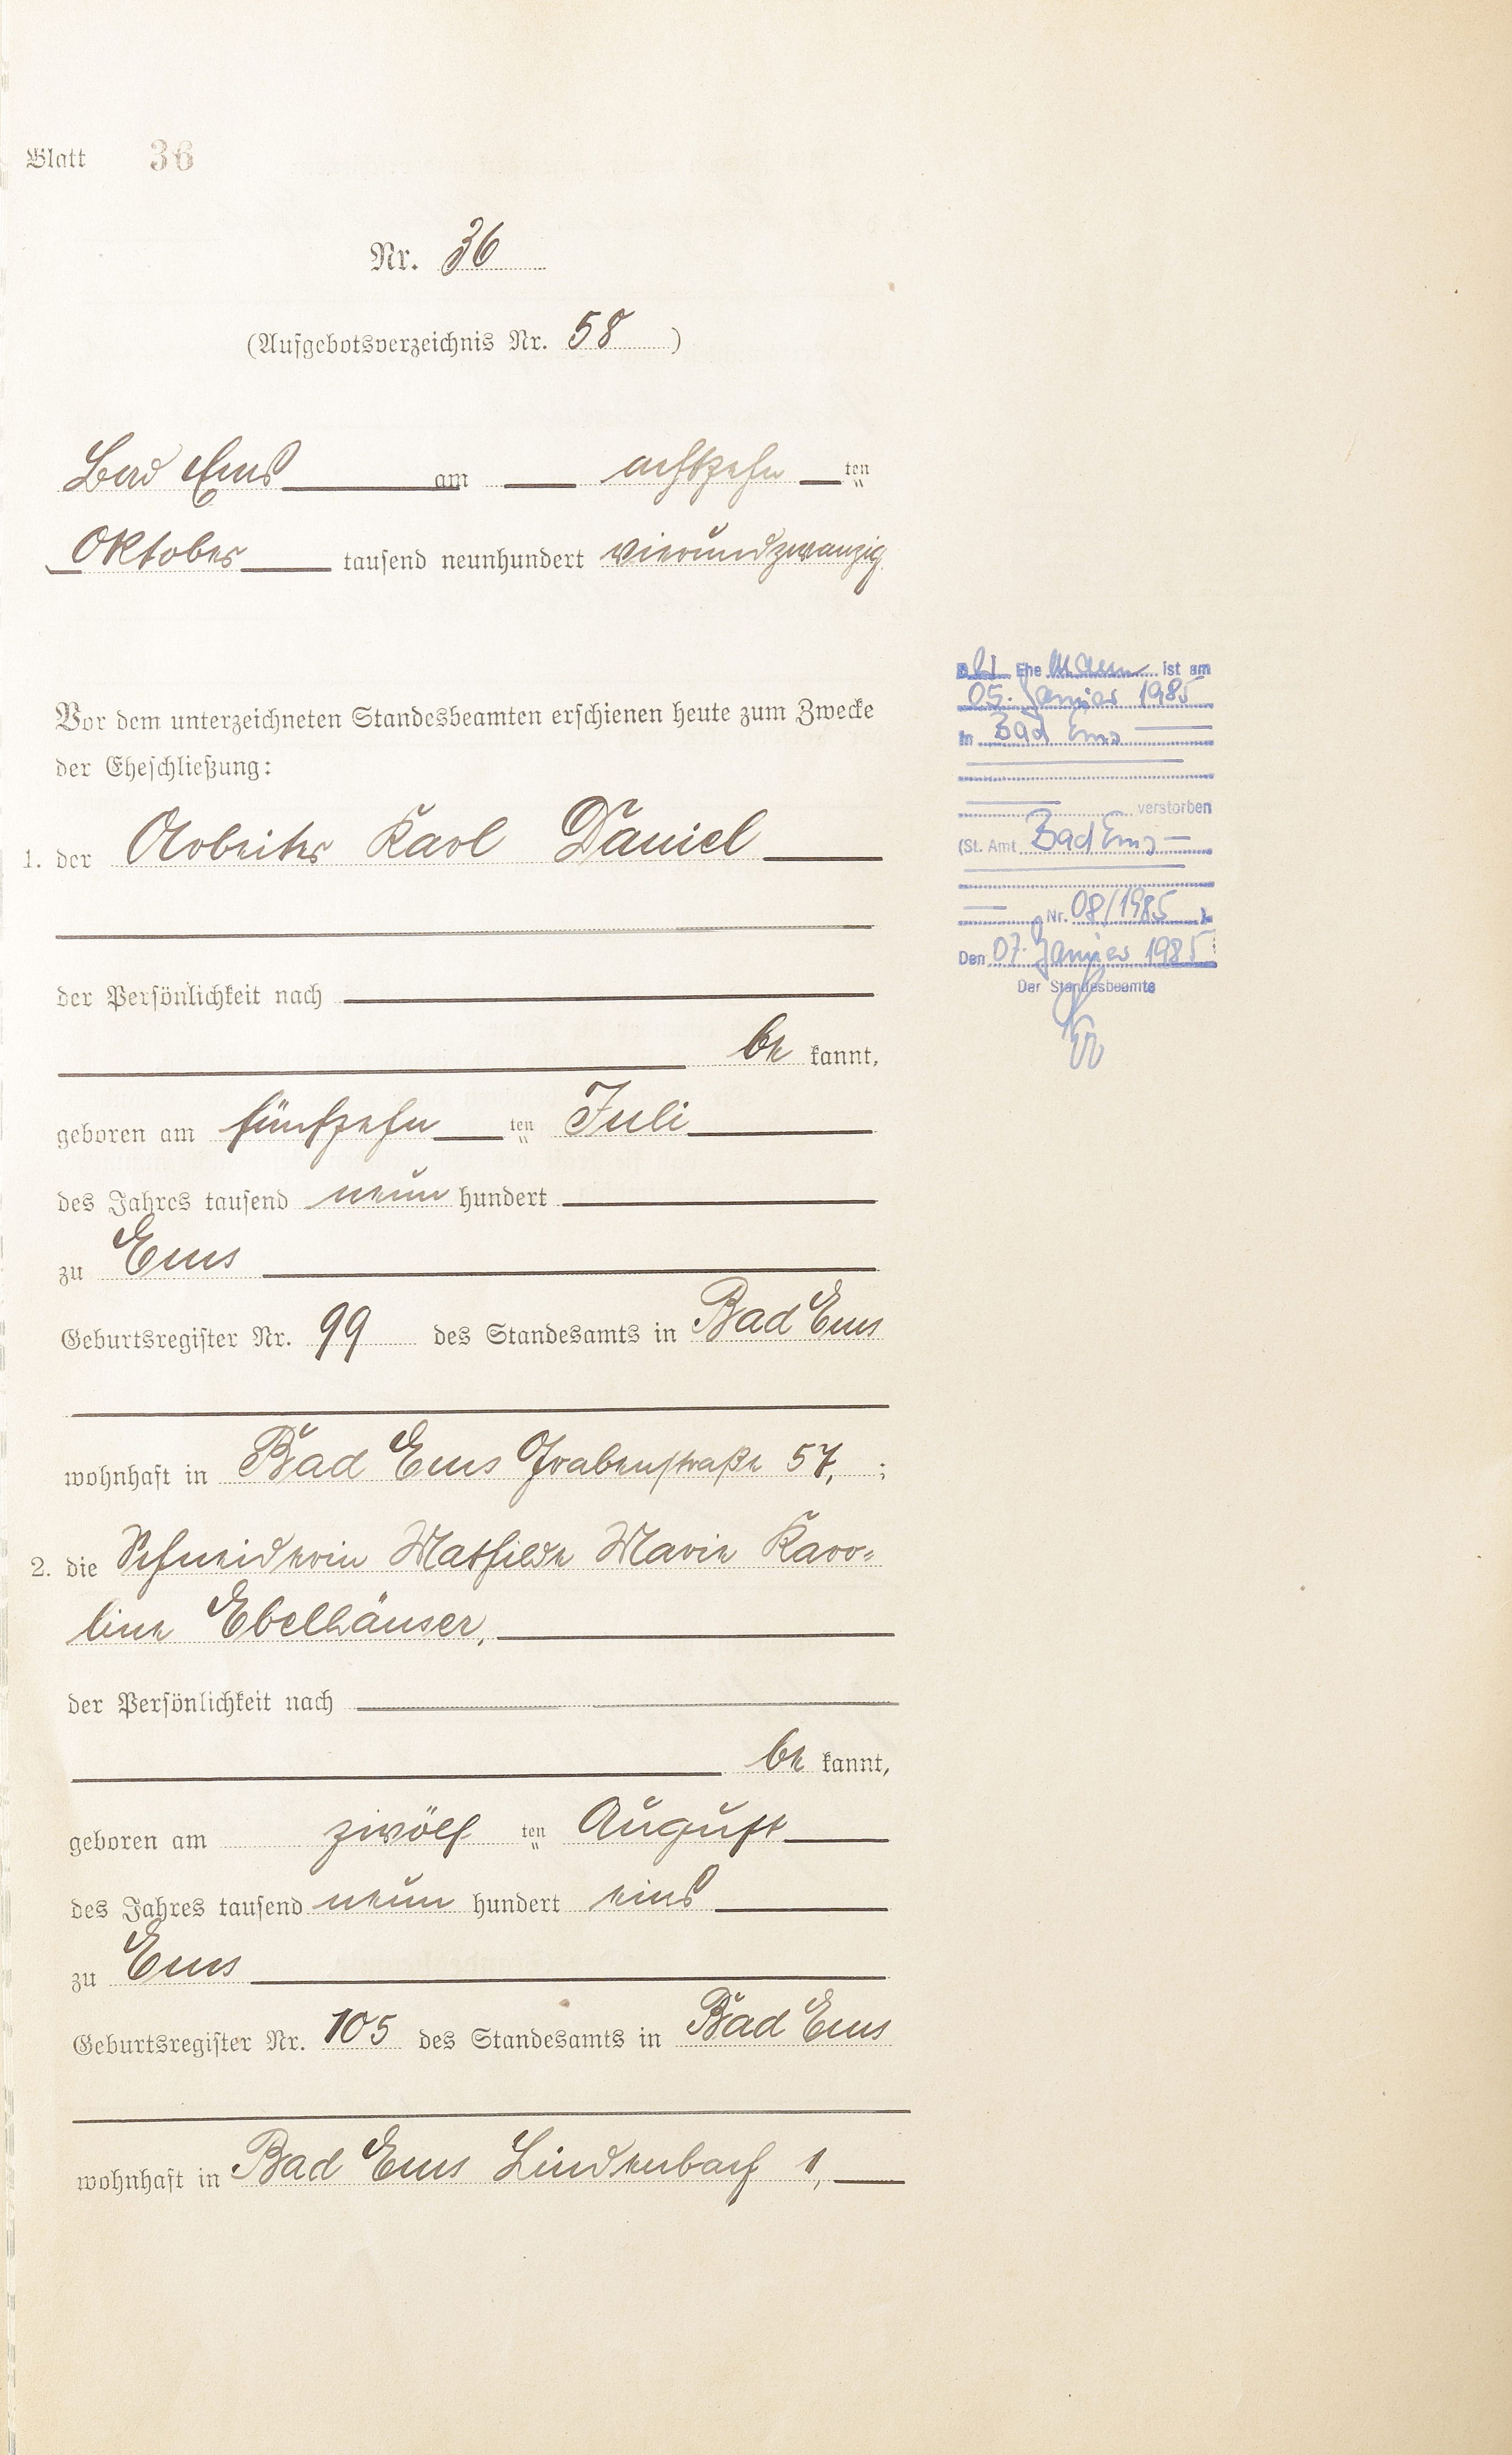 Blatt 36
Nr. 36
(Aufgebotsverzeichnis Nr. 58)
Bad Ems am achtzehn ten
Oktober tausend neunhundert vierundzwanzig
Vor dem unterzeichneten Standesbeamten erschienen heute zum Zwecke
der Eheschließung:
1. der Arbeiter Karl Daniel
der Persönlichkeit nach
be kannt,
geboren am fünfzehn ten Juli
des Jahres tausend neun hundert
zu Ems
Geburtsregister Nr. 99 des Standesamts in Bad Ems
wohnhaft in Bad Ems Grabenstraße 57, ;
2. die Schneiderin Mathilde Marie Karo=
line Ebelhäuser,
der Persönlichkeit nach
be kannt,
geboren am zwölf ten August
des Jahres tausend neun hundert eins
zu Ems
Geburtsregister Nr. 105 des Standesamts in Bad Ems
wohnhaft in Bad Ems Lindenbach 1,
Der Ehe mann ist am
05. Januar 1985
in Bad Ems
verstorben
(St. Amt Bad Ems
Nr. 08/1985 ).
Den 07. Januar 1985
Der Standesbeamte